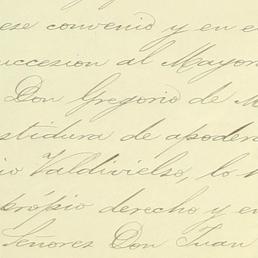 ese convenio y en e
uccesion al Mayor
Don Gregorio de M
stidura de apoder
io Valdivielso, lo h
própio derecho y en
Señores Don Juan